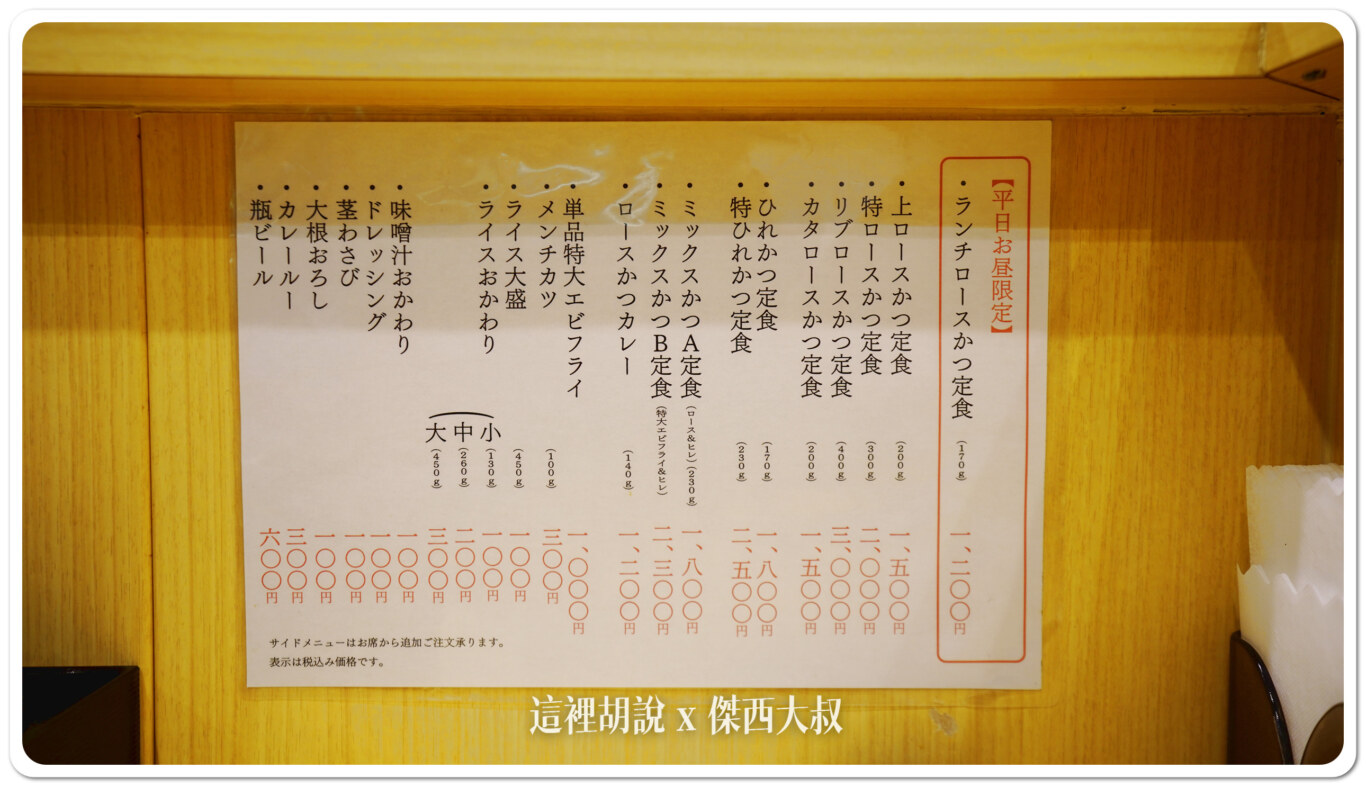 【平日お昼限定】
・ランチロースかつ定食（170g）一、二〇〇円
・上ロースかつ定食（200g）一、五〇〇円
・特ロースかつ定食（300g）二、〇〇〇円
・リブロースかつ定食（400g）三、〇〇〇円
・カタロースかつ定食（200g）一、五〇〇円
・ひれかつ定食（170g）一、八〇〇円
・特ひれかつ定食（230g）二、五〇〇円
・ミックスかつA定食（ロース&ヒレ）（230g）一、八〇〇円
・ミックスかつB定食（特大エビフライ&ヒレ）二、三〇〇円
・ロースかつカレー（140g）一、二〇〇円
・単品特大エビフライ 一、〇〇〇円
・メンチカツ（100g）三〇〇円
・ライス大盛（450g）一〇〇円
・ライスおかわり 小（130g）一〇〇円
中（260g）二〇〇円
大（450g）三〇〇円
・味噌汁おかわり 一〇〇円
・ドレッシング 一〇〇円
・茎わさび 一〇〇円
・大根おろし 一〇〇円
・カレールー 三〇〇円
・瓶ビール 六〇〇円
サイドメニューはお席から追加ご注文承ります。
表示は税込み価格です。
這裡胡說 x 傑西大叔